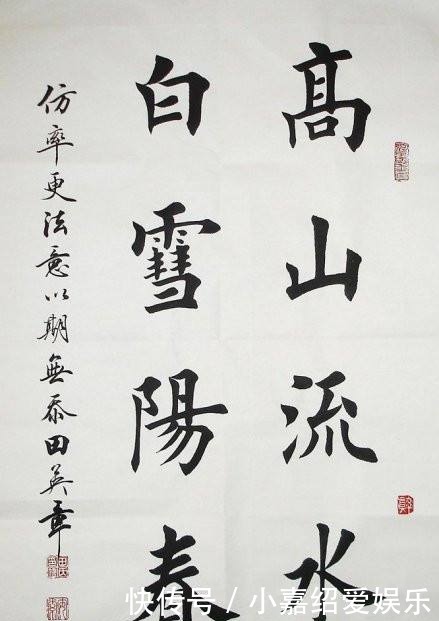 高山流水
白雪陽春
仿率更法意以期無忝田英章
快传号／小嘉绍爱娱乐